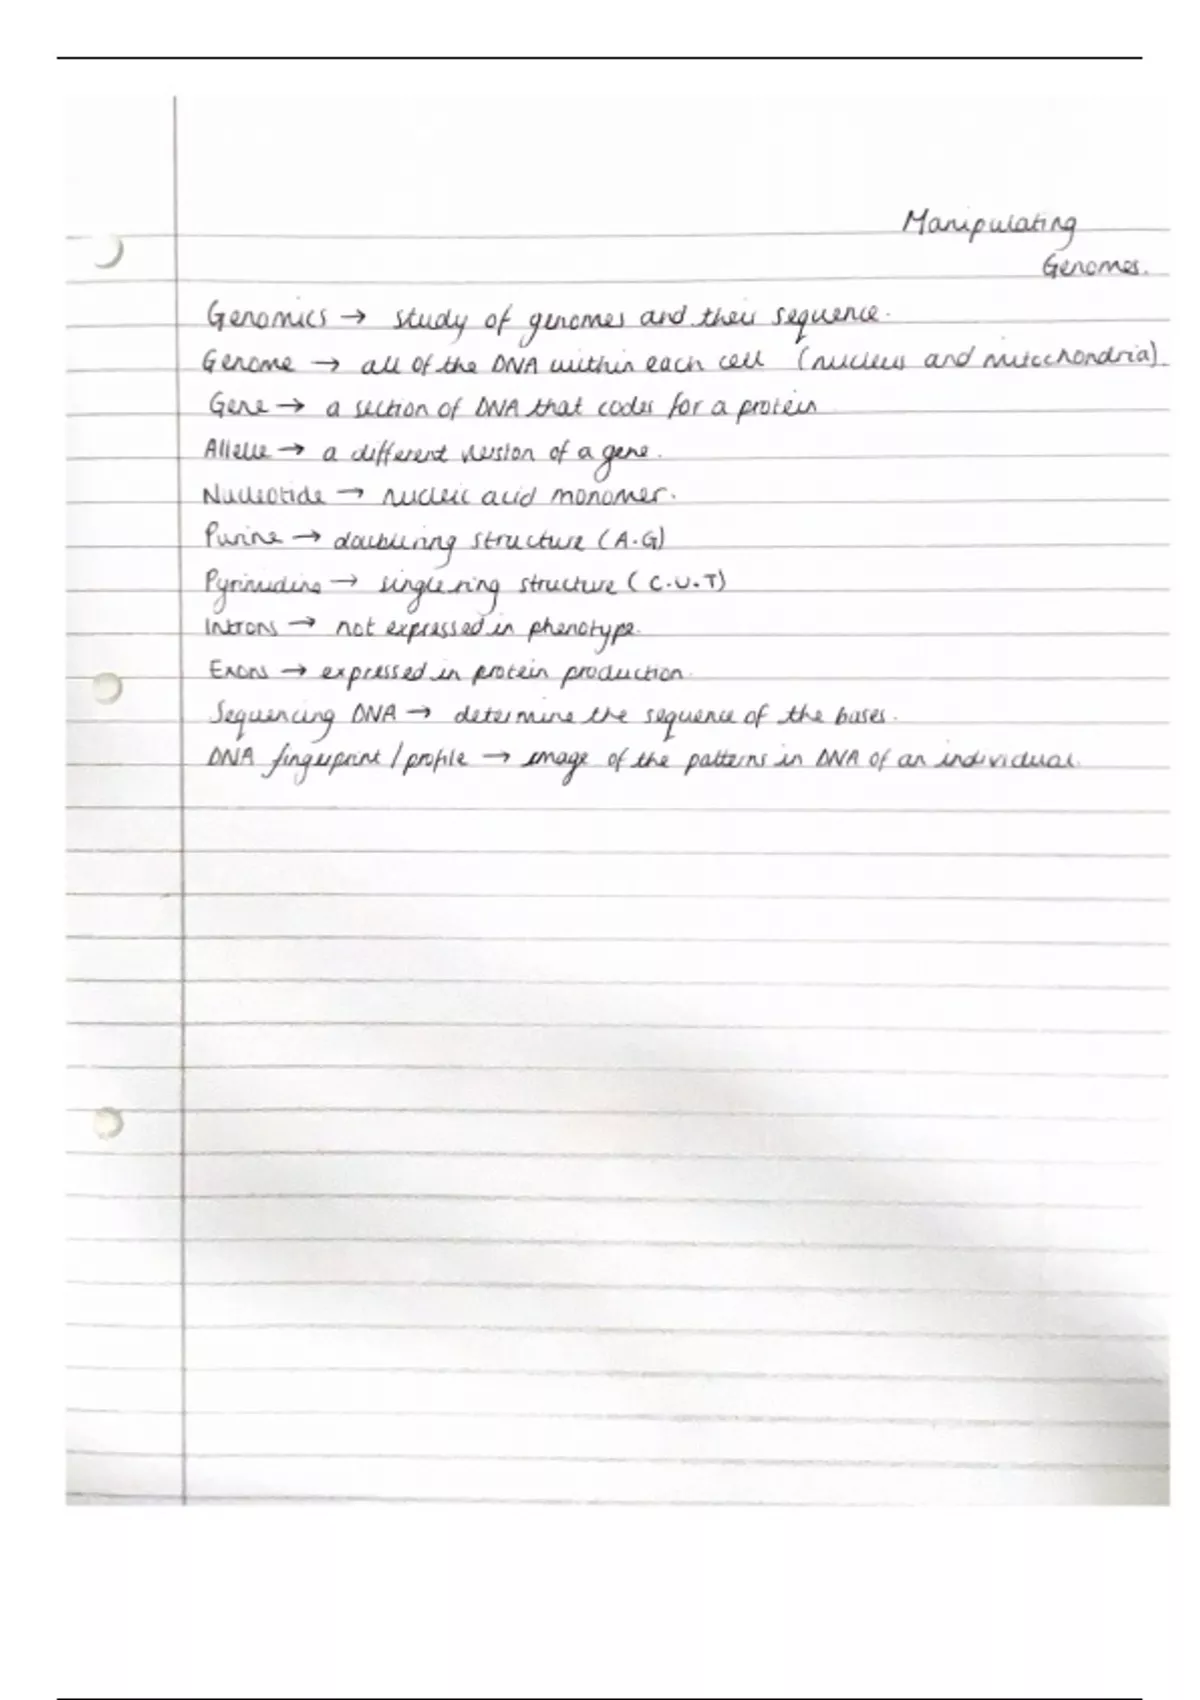 Manipulating
Genomes.
Genomics → study of genomes and their sequence.
Genome → all of the DNA within each cell (nucleus and mitochondria).
Gene → a section of DNA that codes for a protein
Allelle → a different version of a gene.
Nucleotide → nucleic acid monomer.
Purine → double ring structure (A.G)
Pyrimidine → single ring structure (C.U.T)
Introns → not expressed in phenotype.
Exons → expressed in protein production.
Sequencing DNA → determine the sequence of the bases.
DNA fingerprint / profile → image of the patterns in DNA of an individual.